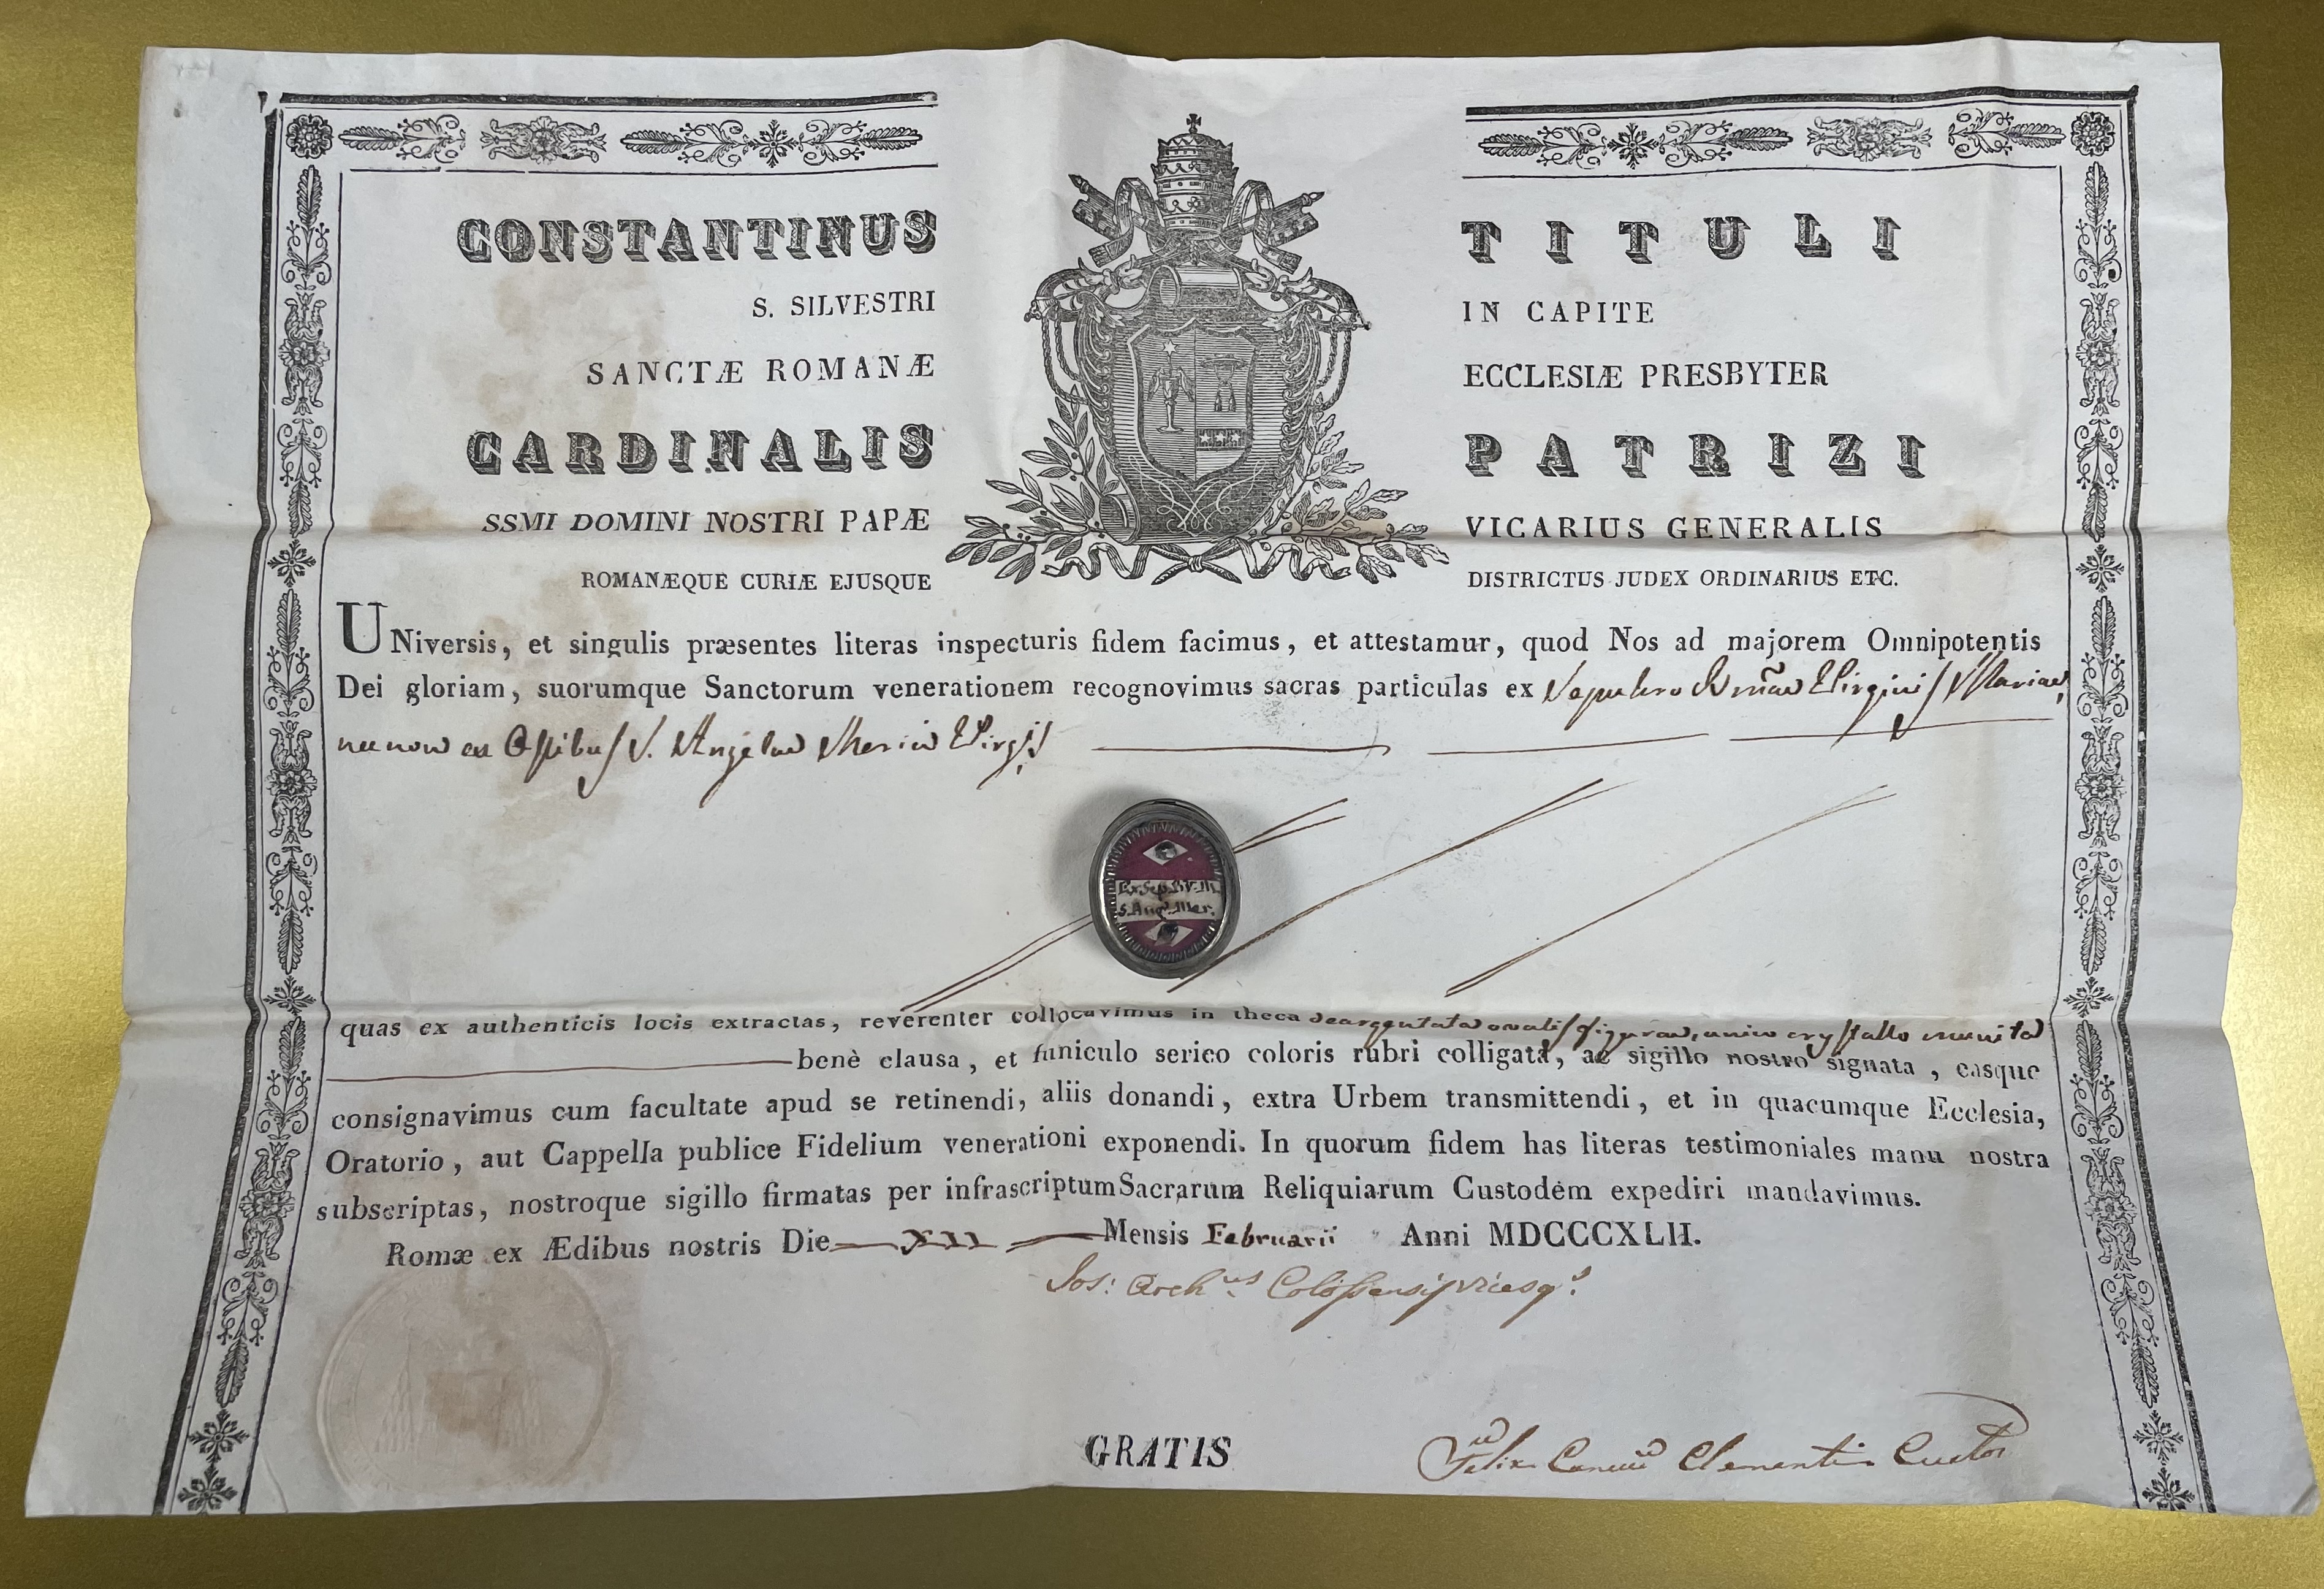 CONSTANTINUS TITULI
S. SILVESTRI IN CAPITE
SANCTÆ ROMANÆ ECCLESIÆ PRESBYTER
CARDINALIS PATRIZI
SSMI DOMINI NOSTRI PAPÆ VICARIUS GENERALIS
ROMANÆQUE CURIÆ EJUSQUE DISTRICTUS JUDEX ORDINARIUS ETC.
UNiversis, et singulis præsentes literas inspecturis fidem facimus, et attestamur, quod Nos ad majorem Omnipotentis
Dei gloriam, suorumque Sanctorum venerationem recognovimus sacras particulas ex Sepulcro Virginis Mariae,
necnon ex Ossibus S. Angelae Merici Virgis
Ex Sep. B.V.M.
S. Ang. Mer.
quas ex authenticis locis extractas, reverenter collocavimus in theca dearguentata ovalis figurae, unico crystallo munita
benè clausa, et funiculo serico coloris rubri colligata, ac sigillo nostro signata, easque
consignavimus cum facultate apud se retinendi, aliis donandi, extra Urbem transmittendi, et in quacumque Ecclesia,
Oratorio, aut Cappella publice Fidelium venerationi exponendi. In quorum fidem has literas testimoniales manu nostra
subscriptas, nostroque sigillo firmatas per infrascriptum Sacrarum Reliquiarum Custodem expediri mandavimus.
Romæ ex Ædibus nostris Die Mensis Februarii Anni MDCCCXLII.
Jos: Archus Colossensis Vicesgs
GRATIS Felix Cancus Clementi Custos